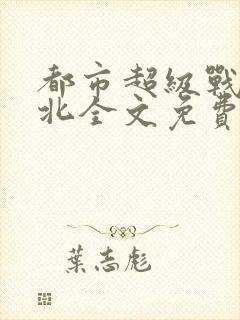 都市超級戰
北全文免費
葉志彪